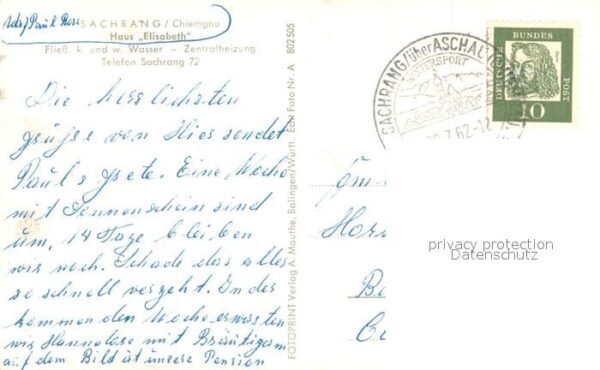 Adr. Paul Rose
SACHRANG / Chiemgau
Haus „Elisabeth"
Fließ. k. und w. Wasser — Zentralheizung
Telefon Sachrang 72
Die herzlichsten
grüße von Hier sendet
Paul & Grete. Eine Woche
mit Sonnenschein sind
um, 14 Tage bleiben
wir noch. Schade das alles
so schnell vergeht. In der
kommenden Woche erwarten
wir Hannelore mit Bräutigam
auf dem Bild ist unsere Pension
FOTOPRINT Verlag A. Mauthe, Balingen/Württ. Ein Foto Nr. A 802505
SACHRANG/über ASCHAU
WINTERSPORT
7.62-12
DEUTSCHE
BUNDES
POST
10
Fam
Hor
Be
privacy protection
Datenschutz